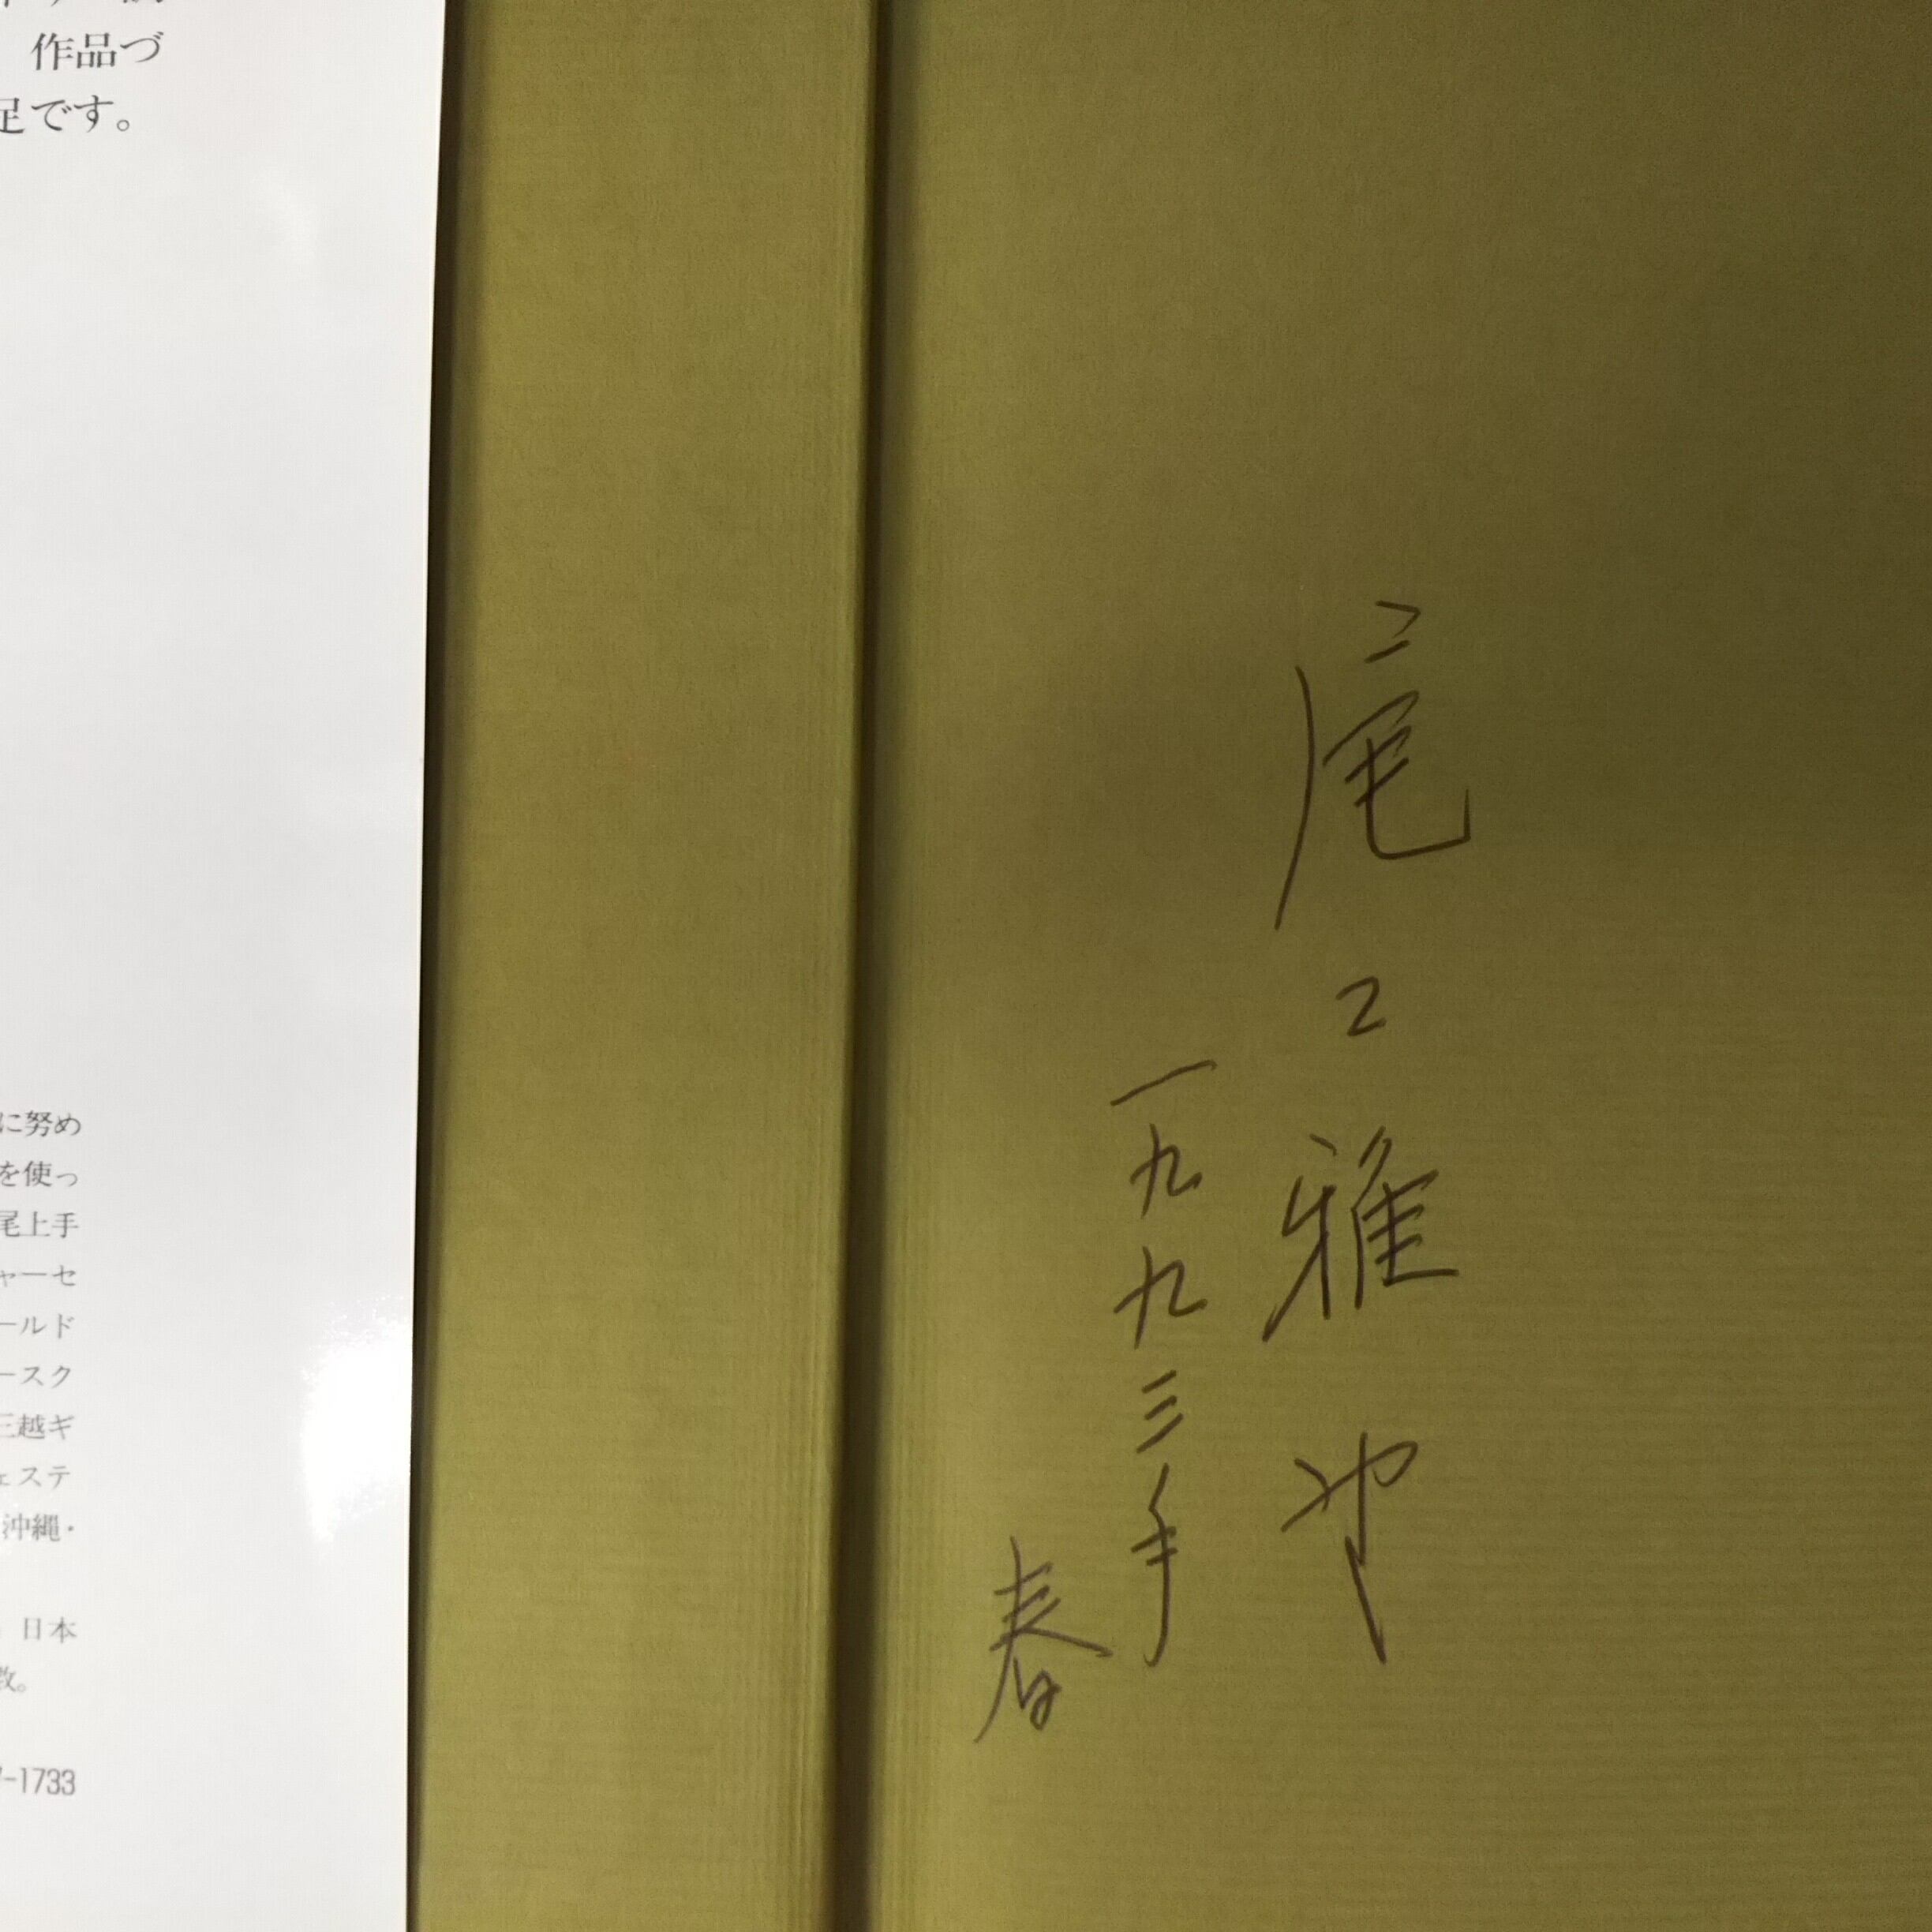 作品づ
足です。
に努め
を使っ
尾上手
ャーセ
ールド
ースク
三越ギ
ェステ
沖縄・
日本
-1733
尾上雅
一九九三年
春